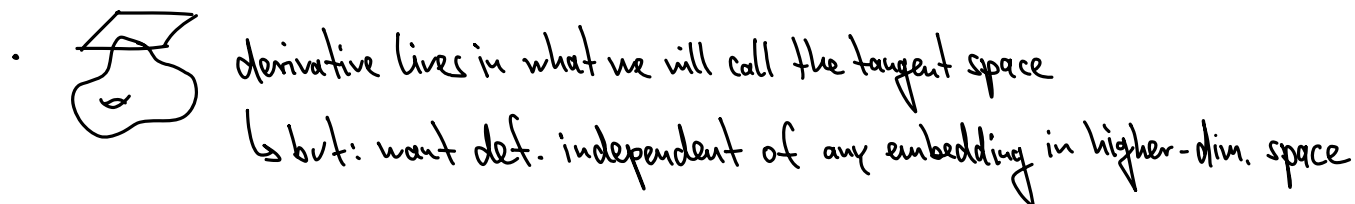 • derivative lives in what we will call the tangent space
↳ but: want def. independent of any embedding in higher-dim. space